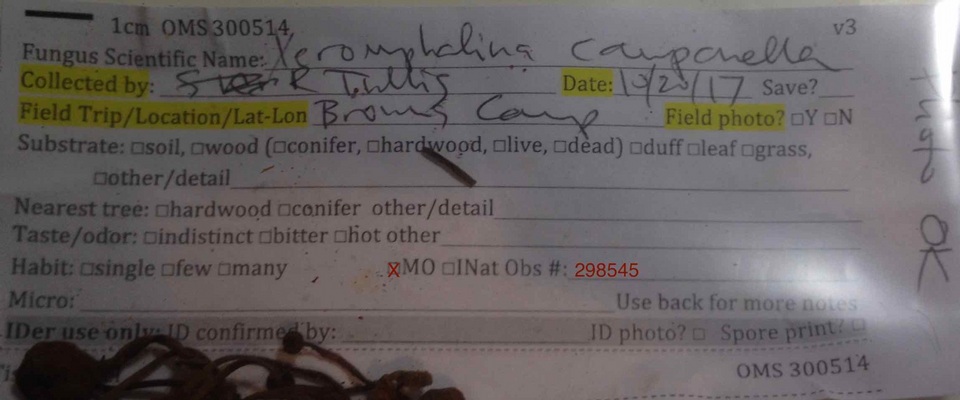 1cm OMS 300514 v3
Fungus Scientific Name: Xeromphalina campanella
Collected by: R Tullis Date: 10/20/17 Save?
Field Trip/Location/Lat-Lon Broms Camp Field photo? □Y □N
Substrate: □soil, □wood (□conifer, □hardwood, □live, □dead) □duff □leaf □grass,
□other/detail
Nearest tree: □hardwood □conifer other/detail
Taste/odor: □indistinct □bitter □hot other
Habit: □single □few □many ☒MO □INat Obs #: 298545
Micro: Use back for more notes
IDer use only: ID confirmed by: ID photo? □ Spore print? □
OMS 300514
OK